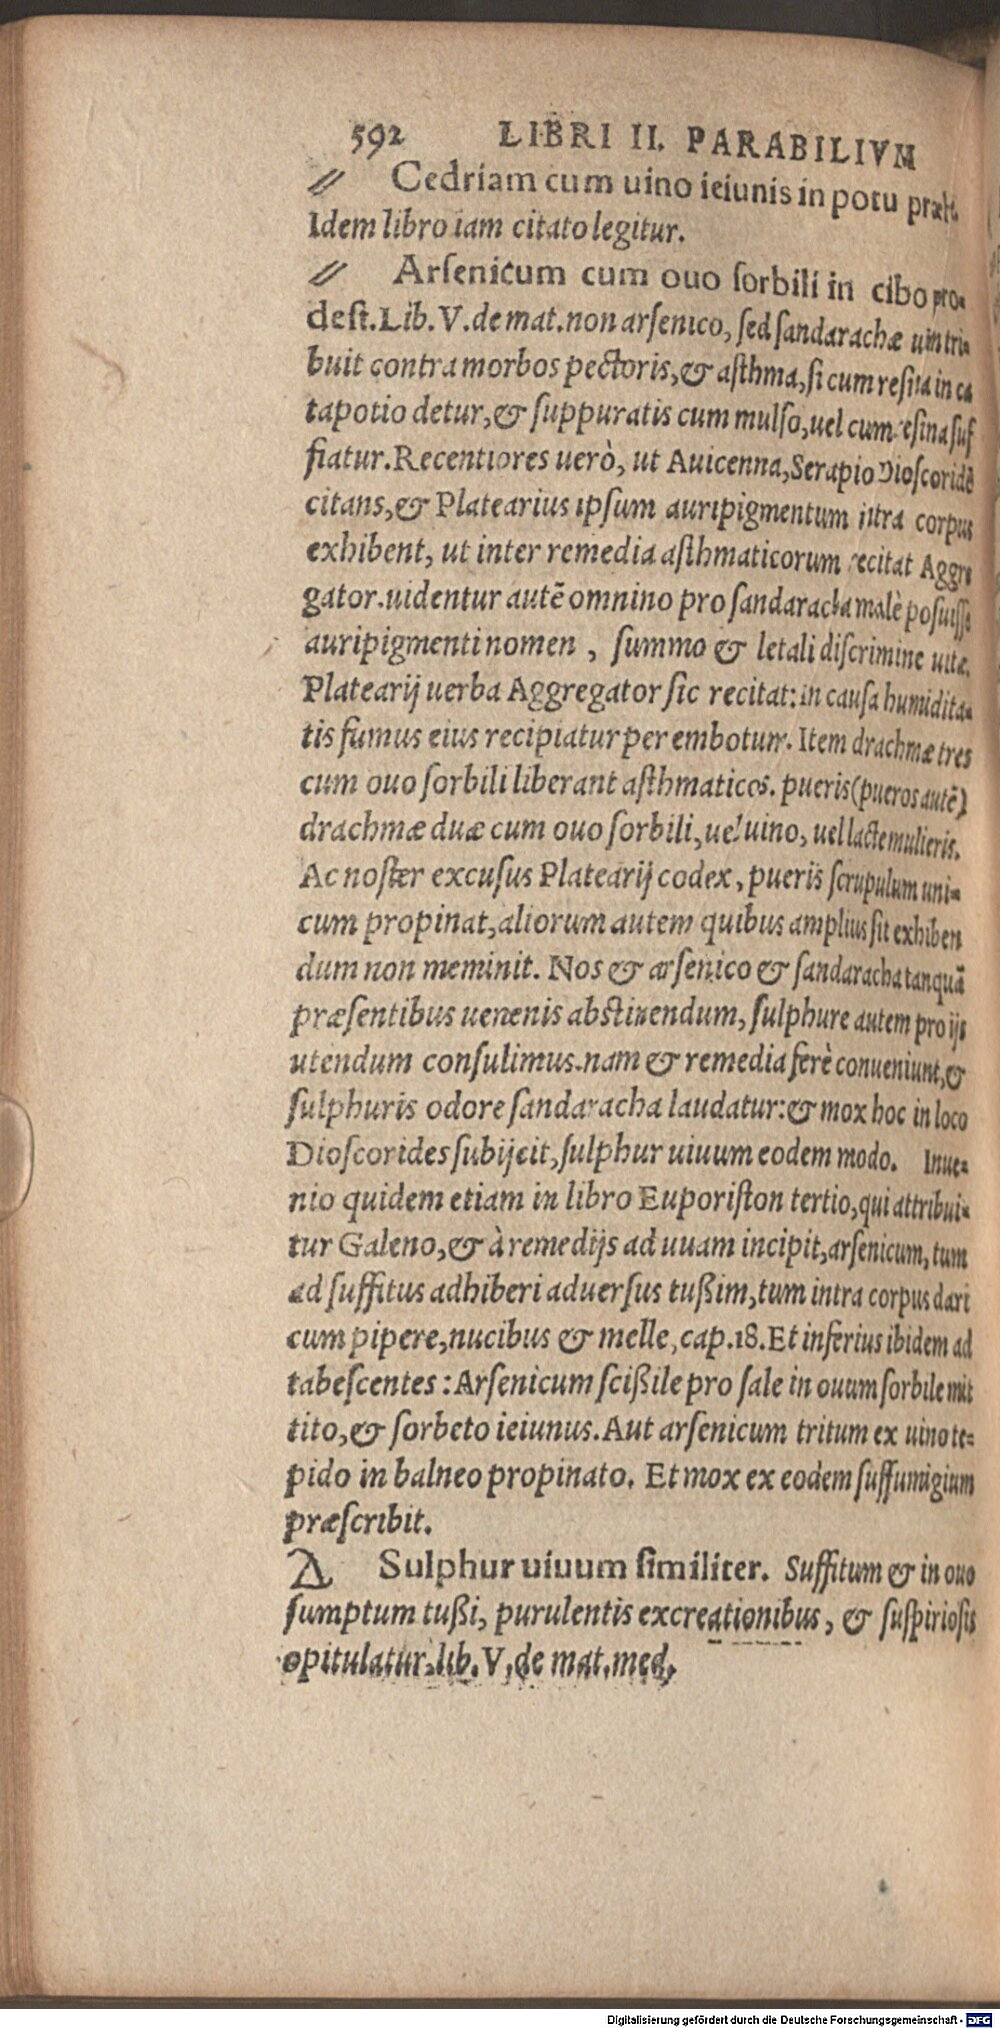 592 LIBRI II. PARABILIVM
// Cedriam cum uino ieiunis in potu præbe.
Idem libro iam citato legitur.
// Arsenicum cum ouo sorbili in cibo pro-
dest. Lib. V. de mat. non arsenico, sed sandarachæ uim tri-
buit contra morbos pectoris, & asthma, si cum resina in ca
tapotio detur, & suppuratis cum mulso, uel cum resina suf
fiatur. Recentiores uerò, ut Auicenna, Serapio Dioscoridē
citans, & Platearius ipsum auripigmentum intra corpus
exhibent, ut inter remedia asthmaticorum recitat Aggre
gator. uidentur autē omnino pro sandaracha malè posuisse
auripigmenti nomen, summo & letali discrimine uitæ.
Platearij uerba Aggregator sic recitat: in causa humidita-
tis fumus eius recipiatur per embotum. Item drachmæ tres
cum ouo sorbili liberant asthmaticos. pueris (pueros autē)
drachmæ duæ cum ouo sorbili, uel uino, uel lacte mulieris.
Ac noster excusus Platearij codex, pueris scrupulum uni-
cum propinat, aliorum autem quibus amplius sit exhiben
dum non meminit. Nos & arsenico & sandaracha tanquā
præsentibus uenenis abstinendum, sulphure autem pro ijs
utendum consulimus. nam & remedia ferè conueniunt, &
sulphuris odore sandaracha laudatur: & mox hoc in loco
Dioscorides subijcit, sulphur uiuum eodem modo. Inue-
nio quidem etiam in libro Euporiston tertio, qui attribui-
tur Galeno, & à remedijs ad uuam incipit, arsenicum, tum
ad suffitus adhiberi aduersus tußim, tum intra corpus dari
cum pipere, nucibus & melle, cap. 18. Et inferius ibidem ad
tabescentes: Arsenicum scißile pro sale in ouum sorbile mit
tito, & sorbeto ieiunus. Aut arsenicum tritum ex uino te-
pido in balneo propinato. Et mox ex eodem suffumigium
præscribit.
Sulphur uiuum similiter. Suffitum & in ouo
sumptum tußi, purulentis excreationibus, & suspiriosis
opitulatur. lib. V. de mat. med.
Digitalisierung gefördert durch die Deutsche Forschungsgemeinschaft - DFG